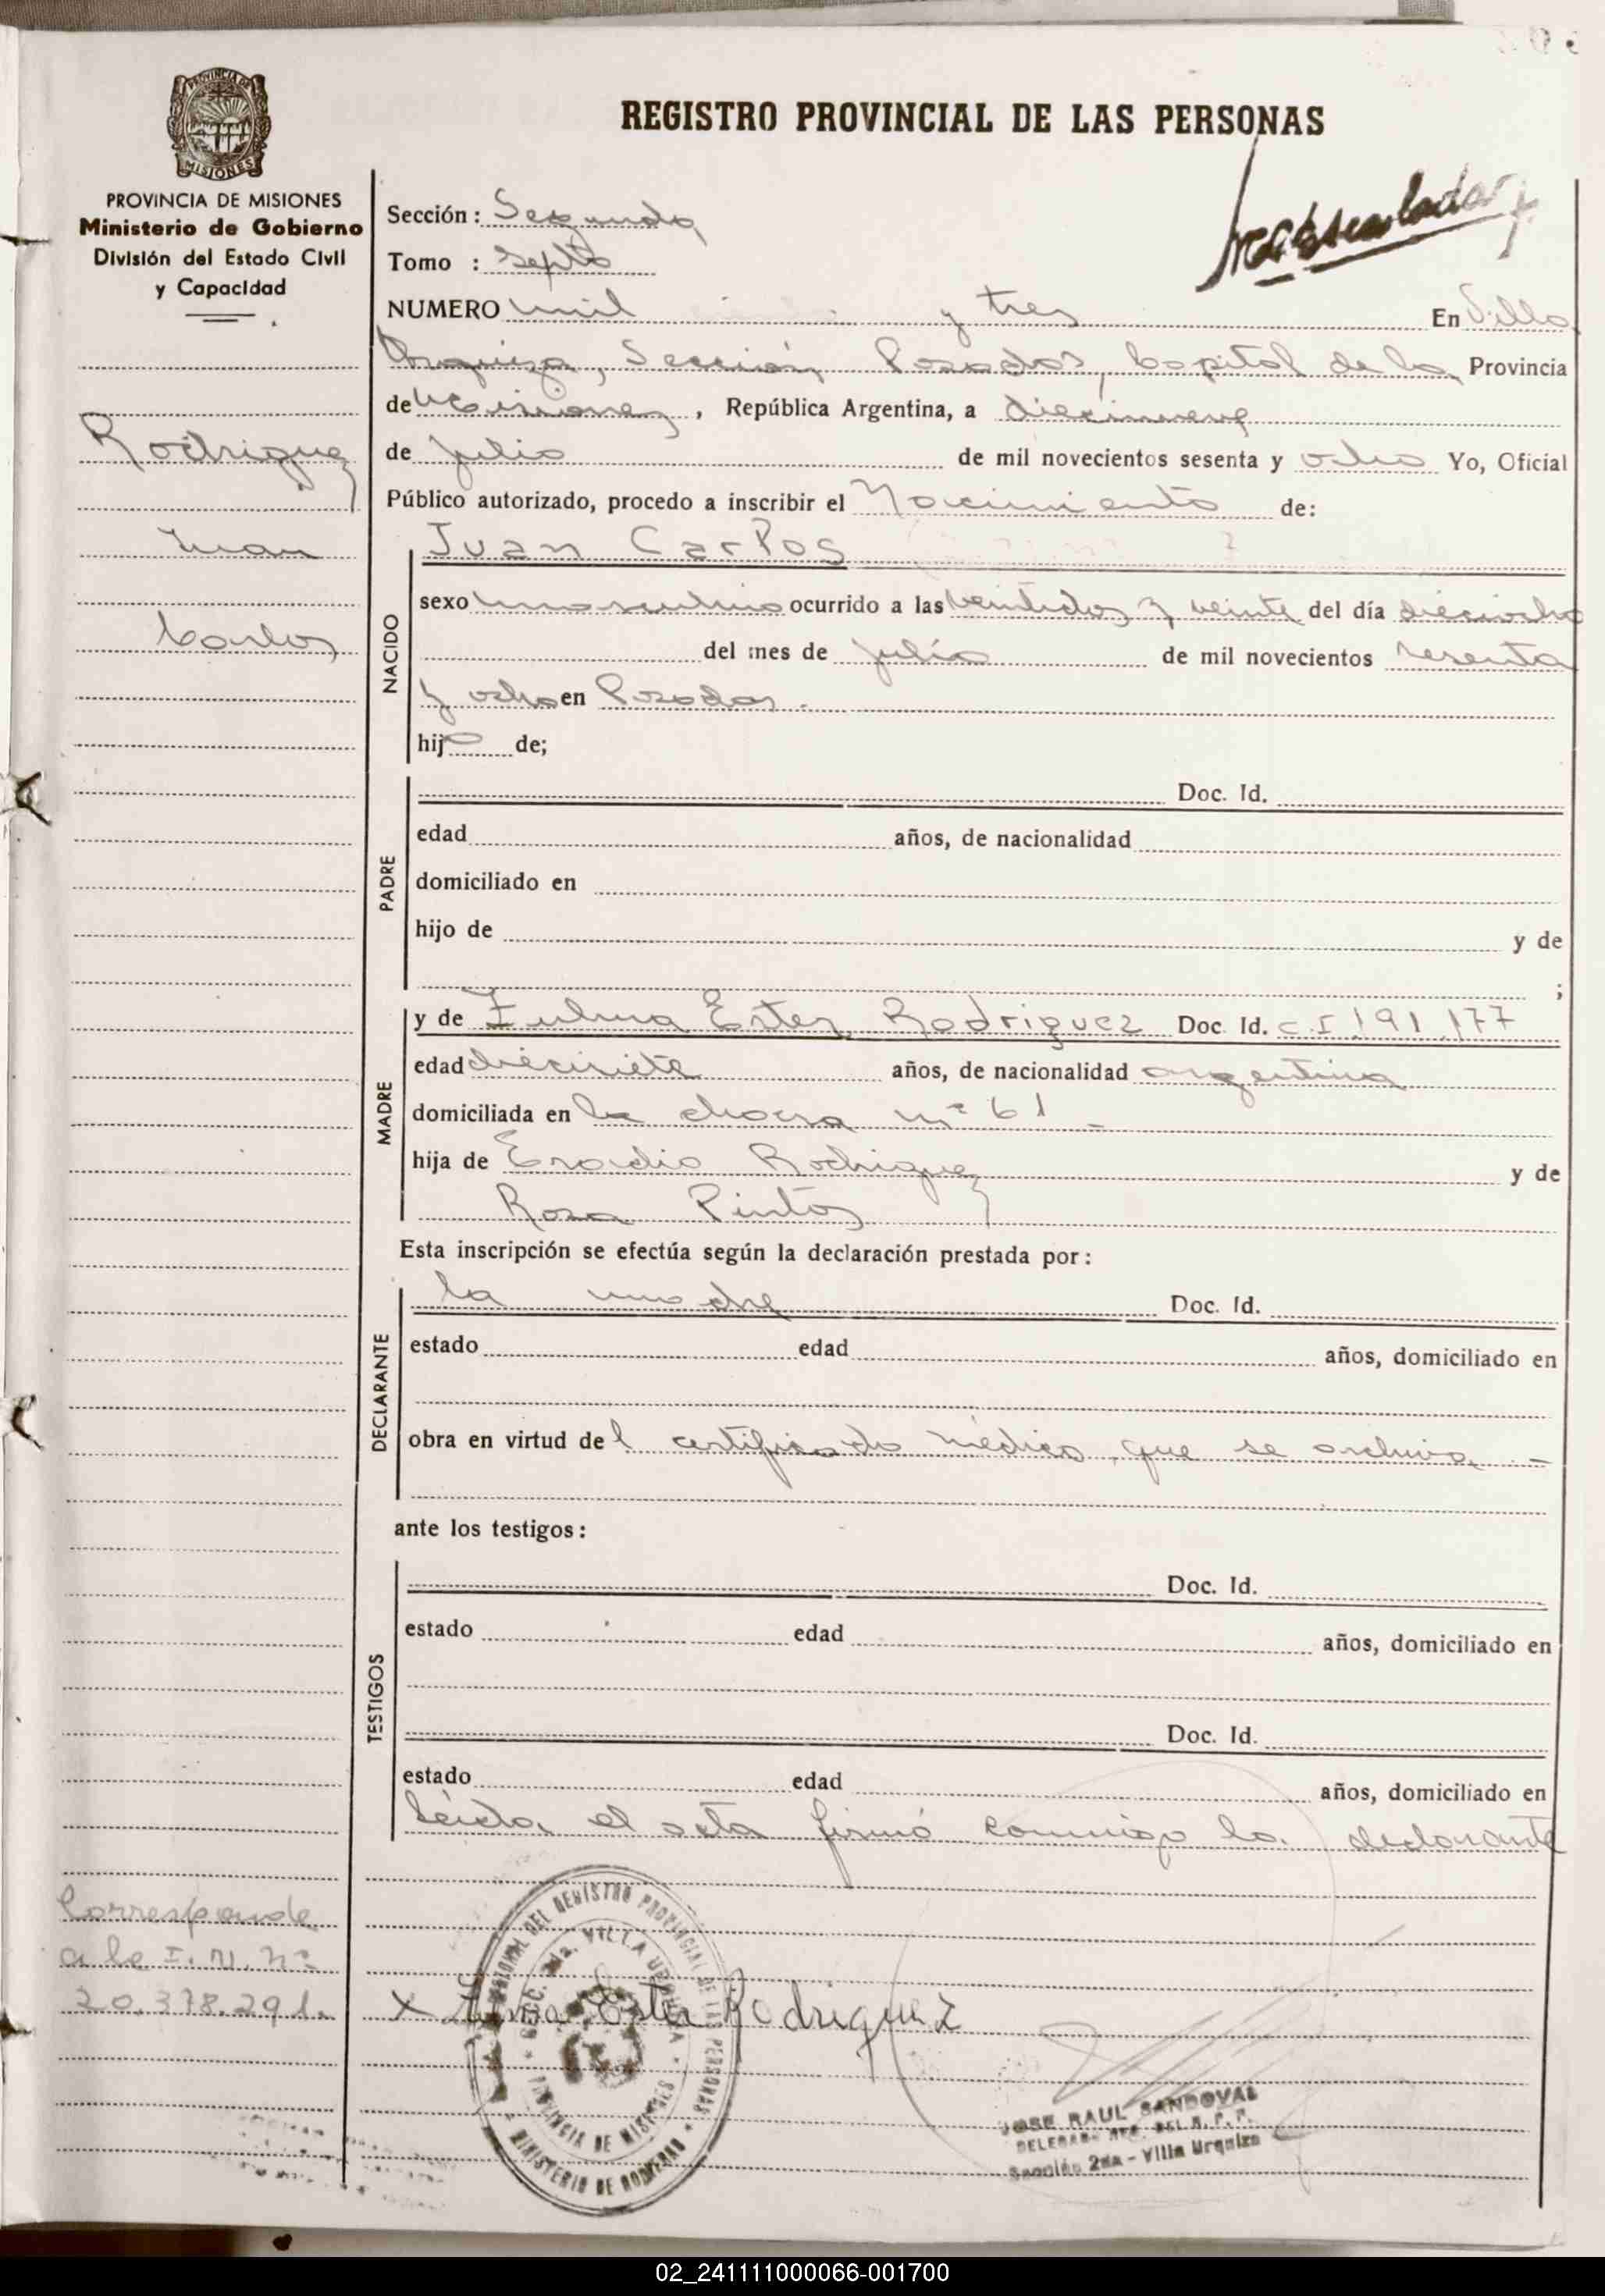 REGISTRO PROVINCIAL DE LAS PERSONAS
PROVINCIA DE MISIONES
MISIONES
PROVINCIA DE MISIONES
Ministerio de Gobierno
División del Estado Civil
y Capacidad
Rodriguez
Juan
Carlos
Sección: Segunda
Tomo : septo
NUMERO mil y tres En Villa
Urquiza, Sección Posadas, Capital de la Provincia
de Misiones, República Argentina, a diecinueve
de julio de mil novecientos sesenta y ocho Yo, Oficial
Público autorizado, procedo a inscribir el Nacimiento de:
NACIDO
Juan Carlos
sexo masculino ocurrido a las veintidos y veinte del día dieciocho
del mes de julio de mil novecientos sesenta
y ocho en Posadas.
hijo de;
PADRE
Doc. Id.
edad años, de nacionalidad
domiciliado en
hijo de y de
;
MADRE
y de Zulma Ester Rodriguez Doc. Id. C.I 191.177
edad diecisiete años, de nacionalidad argentina
domiciliada en la chacra nº 61 -
hija de Eradio Rodriguez y de
Rosa Pintos
Esta inscripción se efectúa según la declaración prestada por:
DECLARANTE
la madre Doc. Id.
estado edad años, domiciliado en
obra en virtud del certificado médico que se archiva. -
ante los testigos:
TESTIGOS
Doc. Id.
estado edad años, domiciliado en
Doc. Id.
estado edad años, domiciliado en
Leída el acta firmó conmigo la declarante
Corresponde
a la I. N. Nº
20.378.291.
x Zulma Ester Rodriguez
DEL REGISTRO PROVINCIAL DE LAS PERSONAS
SECC. 2da. VILLA URQUIZA
PROVINCIA DE MISIONES
MINISTERIO DE GOBIERNO
JOSE RAUL SANDOVAL
DEL R. P. P.
Sección 2da - Villa Urquiza
02_241111000066-001700